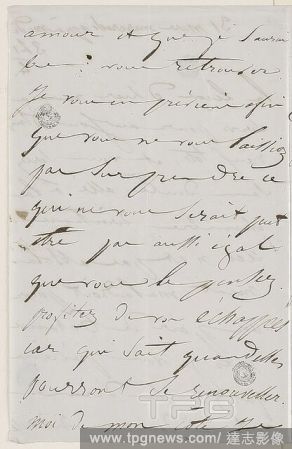 amour et que je saurai
bien vous retrouver
Je vous en préviens afin
que vous ne vous laissiez
pas surprendre ce
qui ne vous serait peut
être pas aussi égal
que vous le pensez.
profitez de vos échappées
car qui sait quand elles
pourront se renouveller.
moi de mon côté je
TPG
www.tpgnews.com | 達志影像